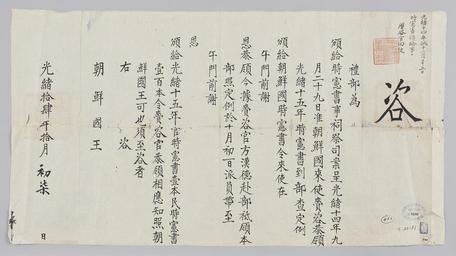 咨
禮部為
頒給時憲書事祠祭司案呈光緒十四年九
月二十九日准朝鮮國來使賫咨恭領
光緒十五年時憲書到部查定例
頒給朝鮮國時憲書令來使在
午門前謝
恩恭領今據賫咨官方漢德赴部祗領本
部照定例於十月初一日派員帶至
午門前謝
恩
頒給光緒十五年官時憲書壹本民時憲書
壹百本令賫咨官恭領相應知照朝
鮮國王可也須至咨者
右 咨
朝鮮國王
光緒拾肆年拾月 初柒 日